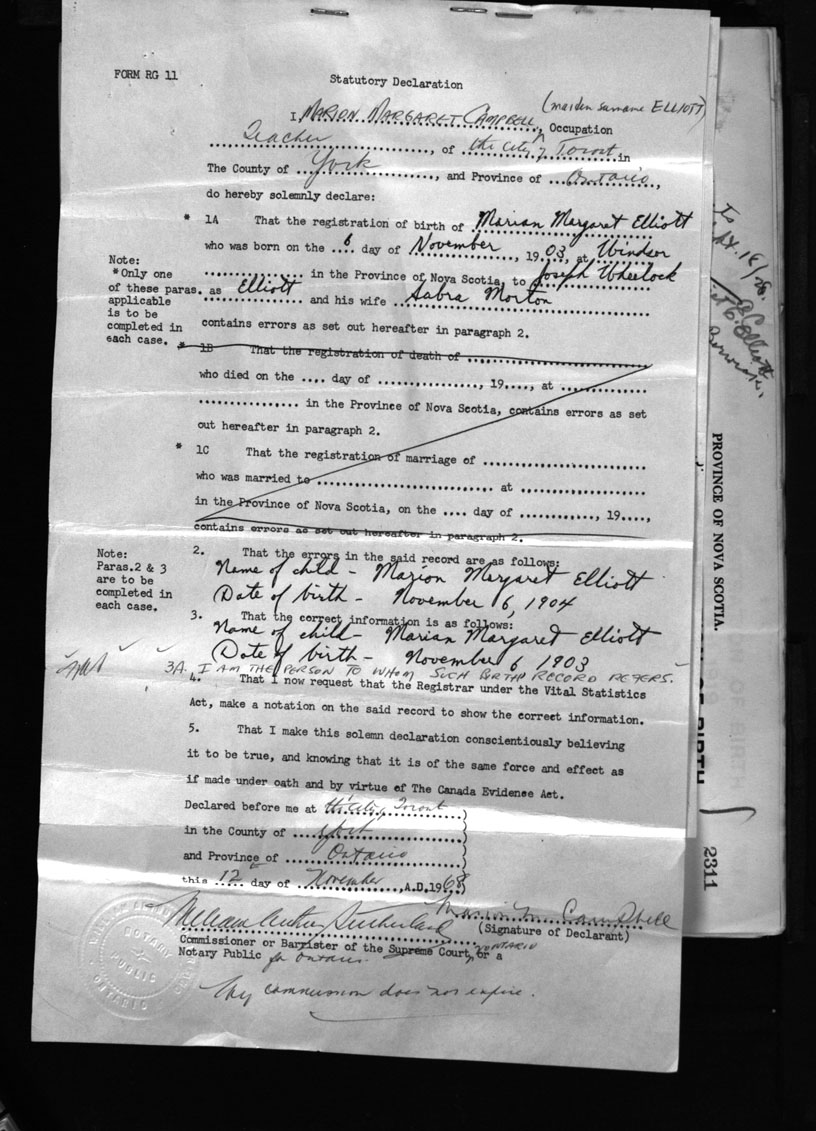 FORM RG 11
Statutory Declaration
(maiden surname ELLIOTT)
I, MARION MARGARET CAMPBELL, Occupation
Teacher, of the City of Toront in
The County of York, and Province of Ontario,
do hereby solemnly declare:
* 1A That the registration of birth of Marian Margaret Elliott
who was born on the 6 day of November, 1903, at Windsor
in the Province of Nova Scotia, to Joseph Wheelock
Elliott and his wife Sabra Morton
contains errors as set out hereafter in paragraph 2.
Note:
*Only one
of these paras. as
applicable
is to be
completed in
each case.
* 1B That the registration of death of ....................
who died on the .... day of ................, 19...., at .............
................ in the Province of Nova Scotia, contains errors as set
out hereafter in paragraph 2.
* 1C That the registration of marriage of ....................
who was married to .............................. at ....................
in the Province of Nova Scotia, on the .... day of ............, 19....,
contains errors as set out hereafter in paragraph 2.
Note:
Paras.2 & 3
are to be
completed in
each case.
2. That the errors in the said record are as follows:
Name of child - Marion Margaret Elliott
Date of birth - November 6, 1904
3. That the correct information is as follows:
Name of child - Marian Margaret Elliott
Date of birth - November 6 1903
3A. I AM THE PERSON TO WHOM SUCH BIRTH RECORD REFERS.
4. That I now request that the Registrar under the Vital Statistics
Act, make a notation on the said record to show the correct information.
5. That I make this solemn declaration conscientiously believing
it to be true, and knowing that it is of the same force and effect as
if made under oath and by virtue of The Canada Evidence Act.
Declared before me at the City, Toront
in the County of York
and Province of Ontario
this 12 day of November, A.D.1968
William Arthur Sutherland
Marion M Campbell
(Signature of Declarant)
Commissioner or Barrister of the Supreme Court, ONTARIO or a
Notary Public for Ontario.
My commission does not expire.
NOTARY
PUBLIC
ONTARIO
PROVINCE OF NOVA SCOTIA.
OF BIRTH
2311